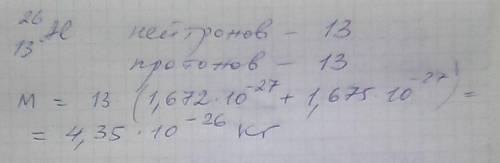 ²⁶₁₃Al нейтронов – 13
протонов – 13
M = 13 (1,672·10⁻²⁷ + 1,675·10⁻²⁷) =
= 4,35·10⁻²⁶ кг